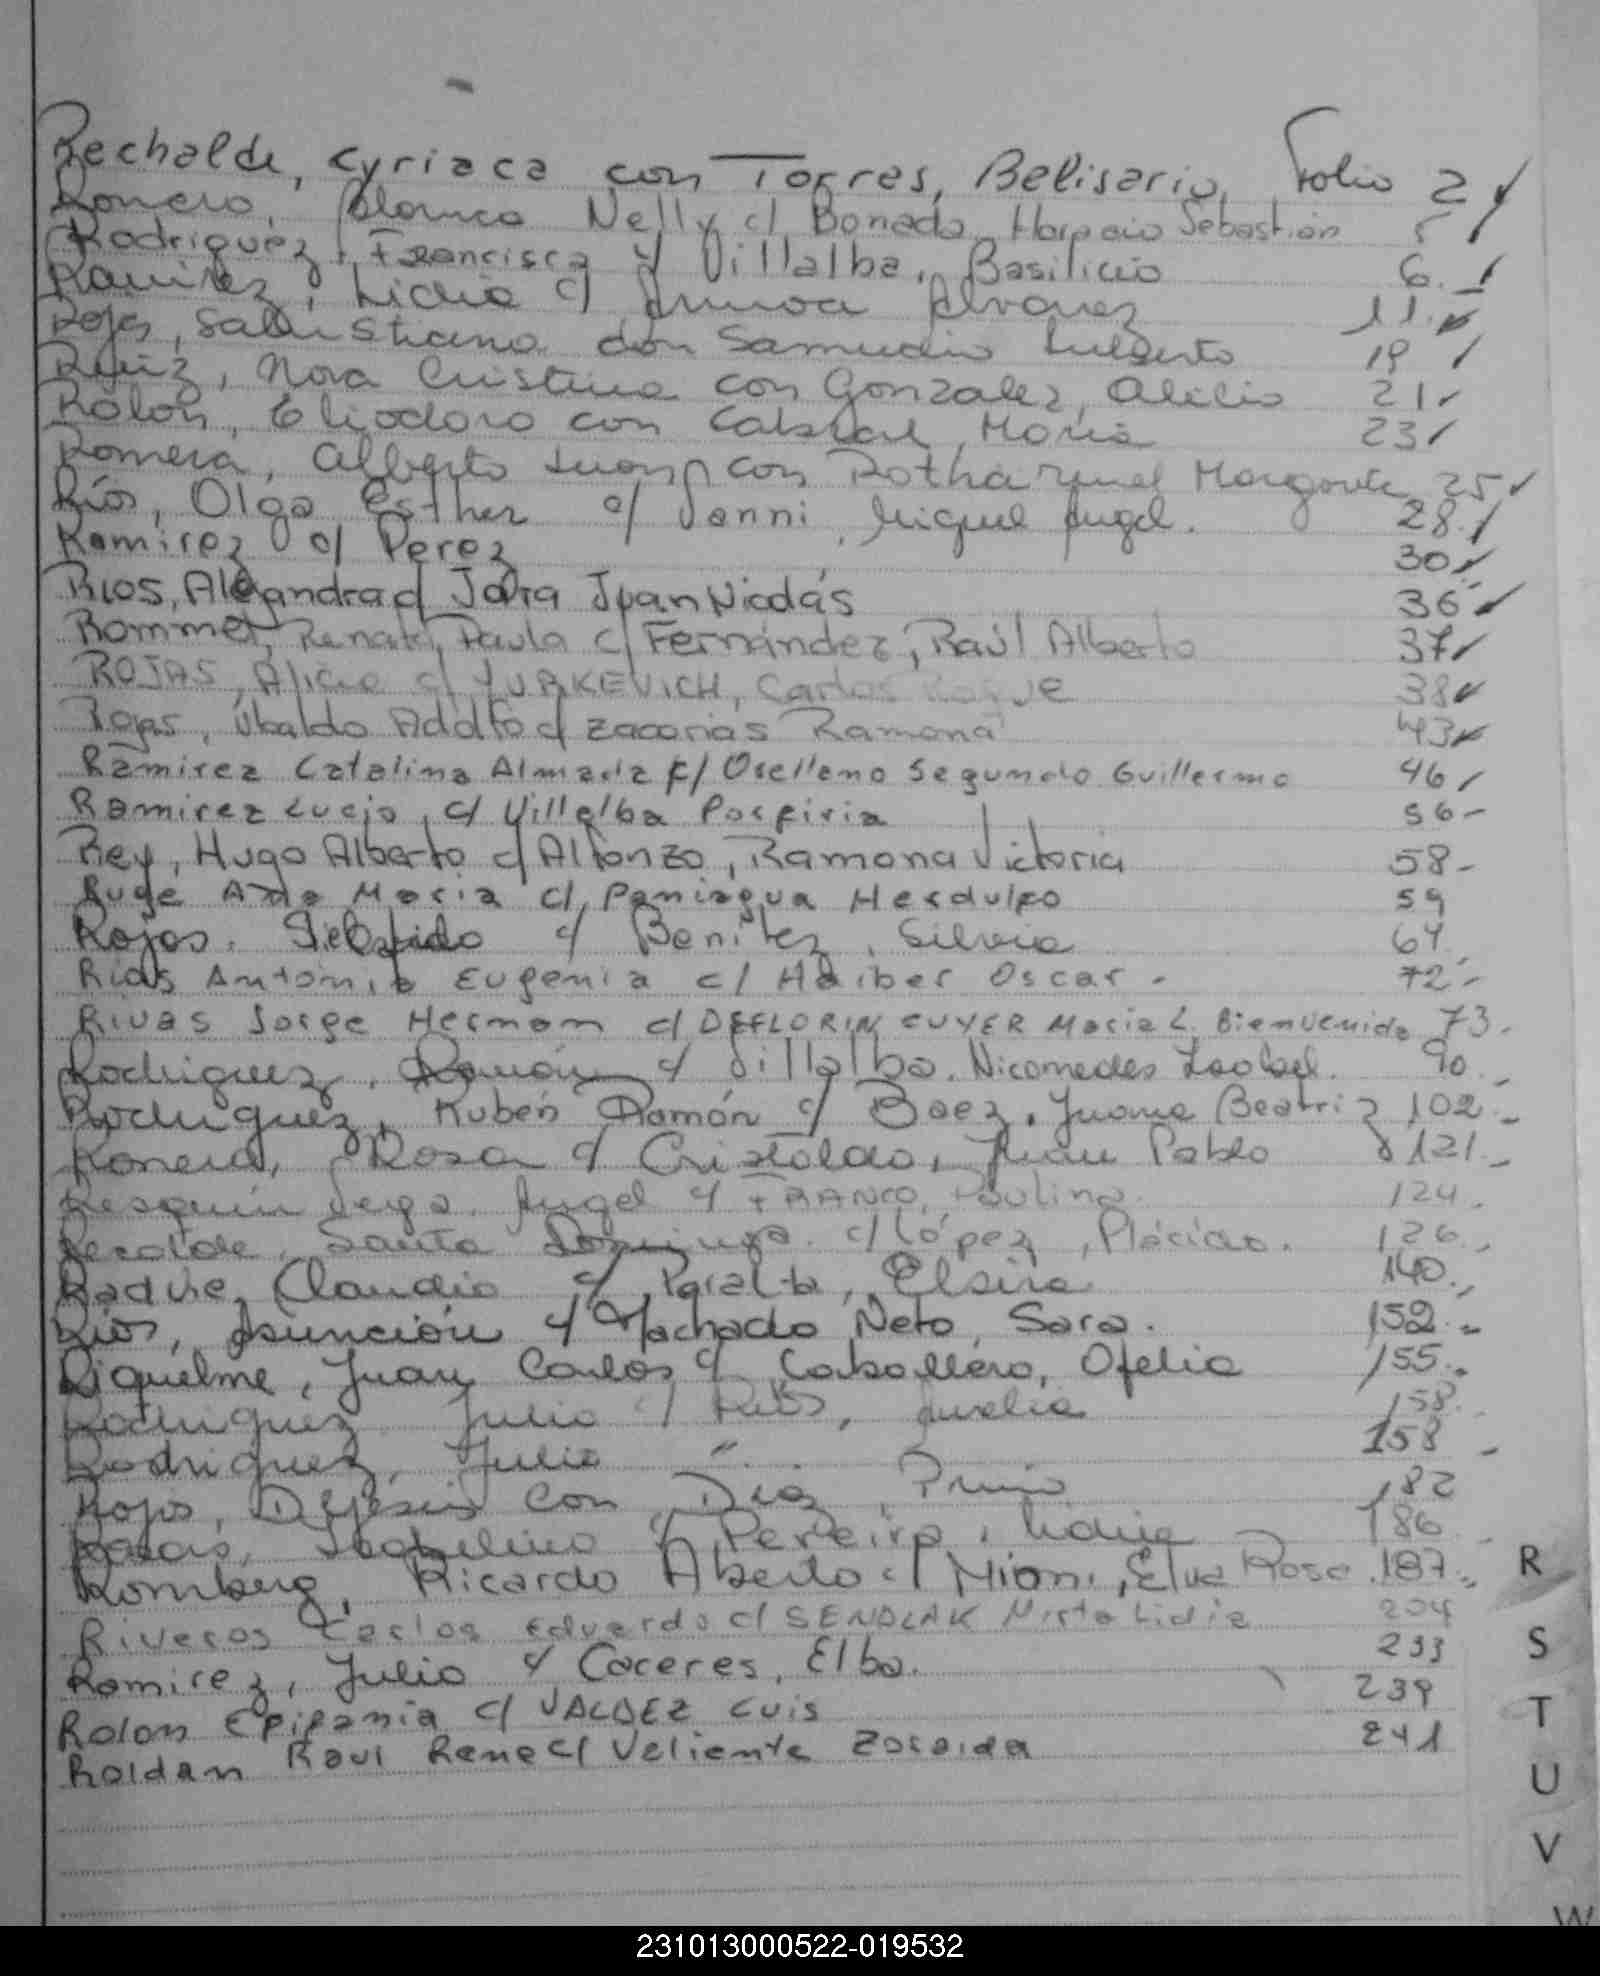 Rechalde, Cyriaca con Torres, Belisario Folio 2
Romero, Blanca Nelly c/ Bonado Horacio Sebastián 5
Rodriguez, Francisca c/ Villalba, Basilicio 6
Ramirez, Lidia c/ Alvarez 11
Rojas, Salustiana con Samudio 19
Ruiz, Nora Cristina con Gonzalez, Alicio 21
Rolon, Eliodoro con Cabral, Maria 23
Romera, Alberto Juan con 25
Ríos, Olga Esther c/ Vanni, Miguel Angel. 28
Ramirez c/ Perez 30
Rios, Alejandra c/ Jara Juan Nicolás 36
Rommel, Renata Paula c/ Fernández, Raúl Alberto 37
ROJAS, Alicia c/ YURKEVICH, Carlos Roque 38
Rojas, Ubaldo Adolfo c/ Zacarias Ramona 43
Ramirez Catalina Almada c/ Orellano Segundo Guillermo 46
Ramirez Lucio, c/ Villalba Porfiria 56-
Rey, Hugo Alberto c/ Alfonzo, Ramona Victoria 58-
Ruge Ana Maria c/ Paniagua Herdulfo 59
Rojas. c/ Benitez, Silvia 64
Rios Antonia Eugenia c/ Haiber Oscar - 72-
Rivas Jorge Hernan c/ DEFLORIN CUYER Maria L. Bienvenida 73.
Rodriguez, Ramón c/ Villalba, Nicomedes Isabel. 90.
Rodriguez, Rubén Ramón c/ Baez, Juana Beatriz 102.-
Romera, Rosa c/ Cristaldo, Juan Pablo 121.-
Resquin Vega. Angel c/ FRANCO, Paulina. 124.
Recalde, Santa Dominga. c/ López, Plácido. 126.
Radvie, Claudio c/ Peralta, Elsira 140.
Ríos, Asunción c/ Machado Neto, Sara. 152.-
Riquelme, Juan Carlos c/ Caballero, Ofelia 155.
Rodriguez Julio c/ Ríos, Aurelia 158.
Rodriguez, Julio " 158 -
Rojas, con Diaz, 182
Isabelino c/ Pereira, Lidia 186
Romberg, Ricardo Alberto c/ Mioni, Elva Rosa. 187.-
Riveros Carlos Eduardo c/ SENDLAK Mirta Lidia 204
Ramirez, Julio c/ Caceres, Elba. 233
Rolon Epifania c/ VALDEZ Luis 239
Roldan Raul Rene c/ Veliente Zoraida 241
R
S
T
U
V
W
231013000522-019532